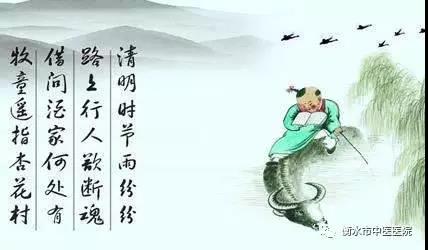 清明时节雨纷纷
路上行人欲断魂
借问酒家何处有
牧童遥指杏花村
衡水市中医医院